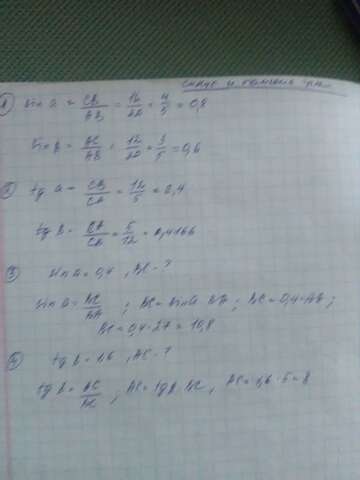 синус и
① sin a = CB/AB = 16/20 = 4/5 = 0,8
sin B = AC/AB = 12/20 = 3/5 = 0,6
② tg a = CB/CA = 12/5 = 0,4
tg B = CA/CB = 5/12 = 0,4166
③ sin a = 0,4 , BC - ?
sin a = BC/BA ; BC = sin a · BA ; BC = 0,4 · AB ;
BC = 0,4 · 27 = 10,8
④ tg B = 1,6 , AC - ?
tg B = AC/BC ; AC = tg B · BC , AC = 1,6 · 5 = 8